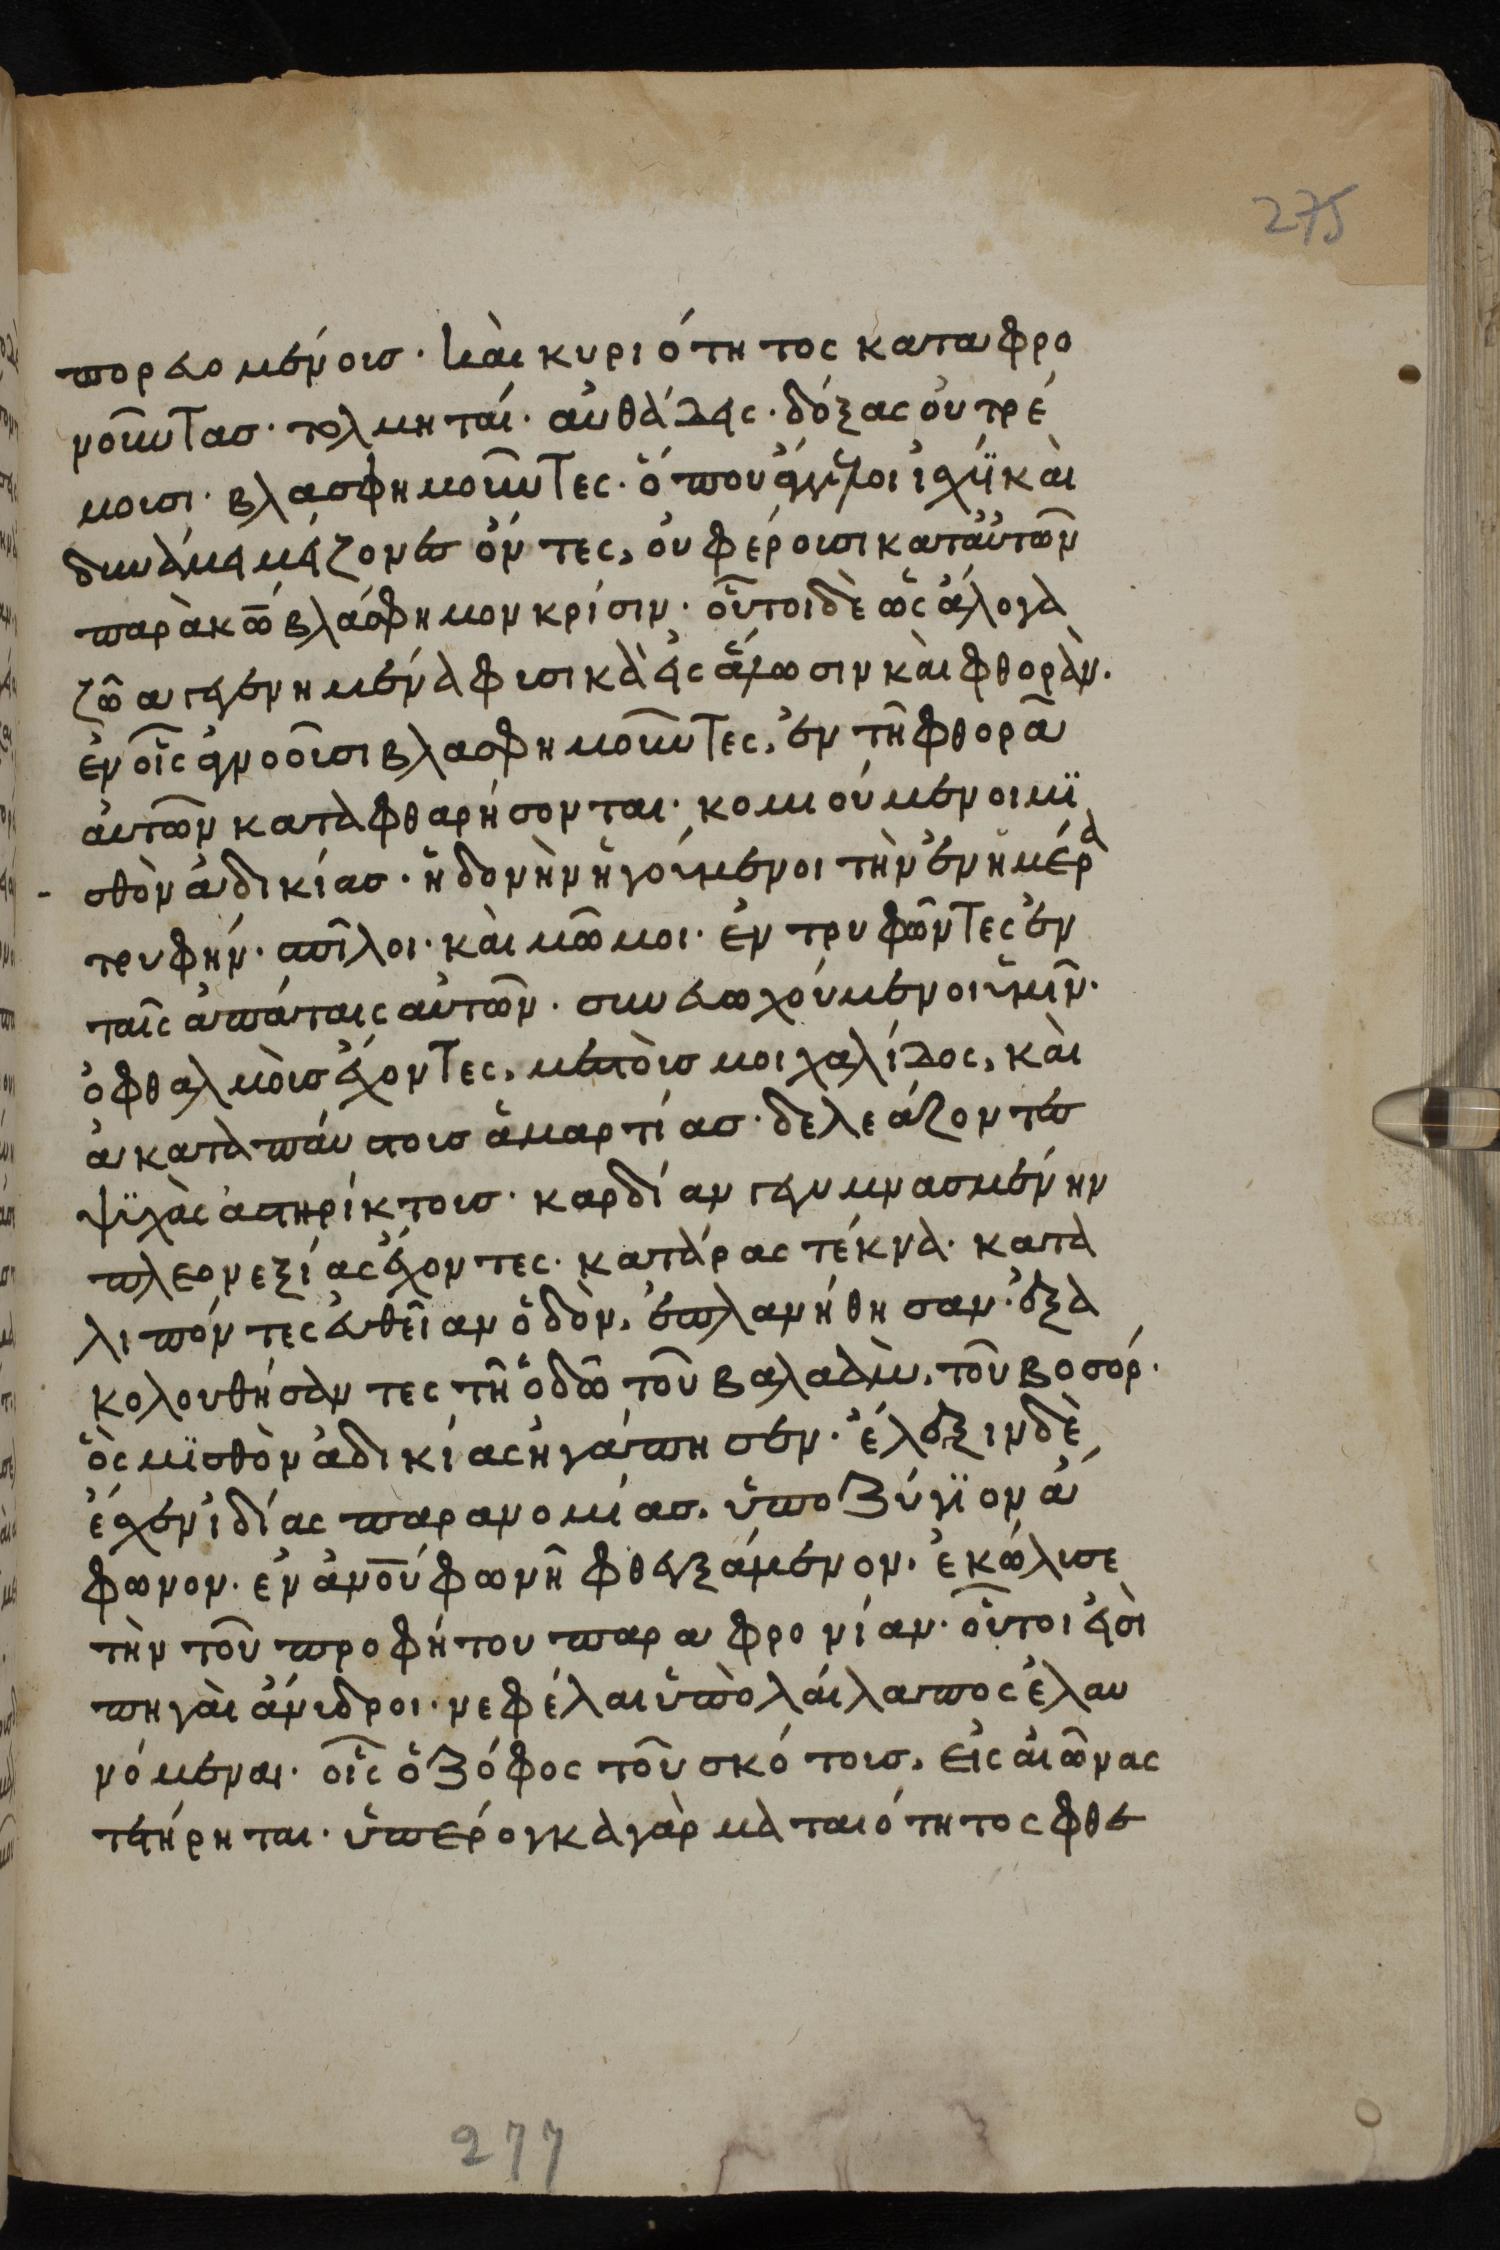 275
πορευομένους· καὶ κυριότητος καταφρο
νοῦντας· τολμηταί· αὐθάδεις· δόξας οὐ τρέ
μουσι· βλασφημοῦντες· ὅπου ἄγγελοι ἰσχύϊ καὶ
δυνάμει μείζονες ὄντες, οὐ φέρουσι κατ' αὐτῶν
παρὰ κω βλάσφημον κρίσιν· οὗτοι δὲ ὡς ἄλογα
ζῶα γεγενημένα φυσικὰ εἰς ἅλωσιν καὶ φθοράν.
ἐν οἷς ἀγνοοῦσι βλασφημοῦντες, ἐν τῆ φθορᾶ
αὐτῶν καταφθαρήσονται· κομιούμενοι μι
σθὸν ἀδικίας· ἡδονὴν ἡγούμενοι τὴν ἐν ἡμέρα
τρυφήν· σπῖλοι· καὶ μῶμοι· ἐντρυφῶντες ἐν
ταῖς ἀπάταις αὐτῶν· συνευωχούμενοι ὑμῖν·
ὀφθαλμοὺς ἔχοντες, μεστοὺς μοιχαλίδος, καὶ
ἀκαταπαύστους ἁμαρτίας· δελεάζοντες
ψυχὰς ἀστηρίκτους· καρδίαν γεγυμνασμένην
πλεονεξίας ἔχοντες· κατάρας τέκνα· κατα
λιπόντες εὐθεῖαν ὁδὸν, ἐπλανήθησαν· ἐξα
κολουθήσαντες τῆ ὁδῶ τοῦ βαλαὰμ, τοῦ βοσόρ·
ὃς μισθὸν ἀδικίας ἠγάπησεν· ἔλεγξιν δὲ
ἔσχεν ἰδίας παρανομίας, ὑποζύγιον ἄ
φωνον· ἐν ἀνοῦ φωνῆ φθεγξάμενον· ἐκώλυσε
τὴν τοῦ προφήτου παραφρονίαν· οὗτοι εἰσὶ
πηγαὶ ἄνυδροι· νεφέλαι ὑπὸ λαίλαπος ἐλαυ
νόμεναι· οἷς ὁ ζόφος τοῦ σκότους, εἰς αἰῶνας
τετήρηται· ὑπέρογκα γὰρ ματαιότητος φθε
277